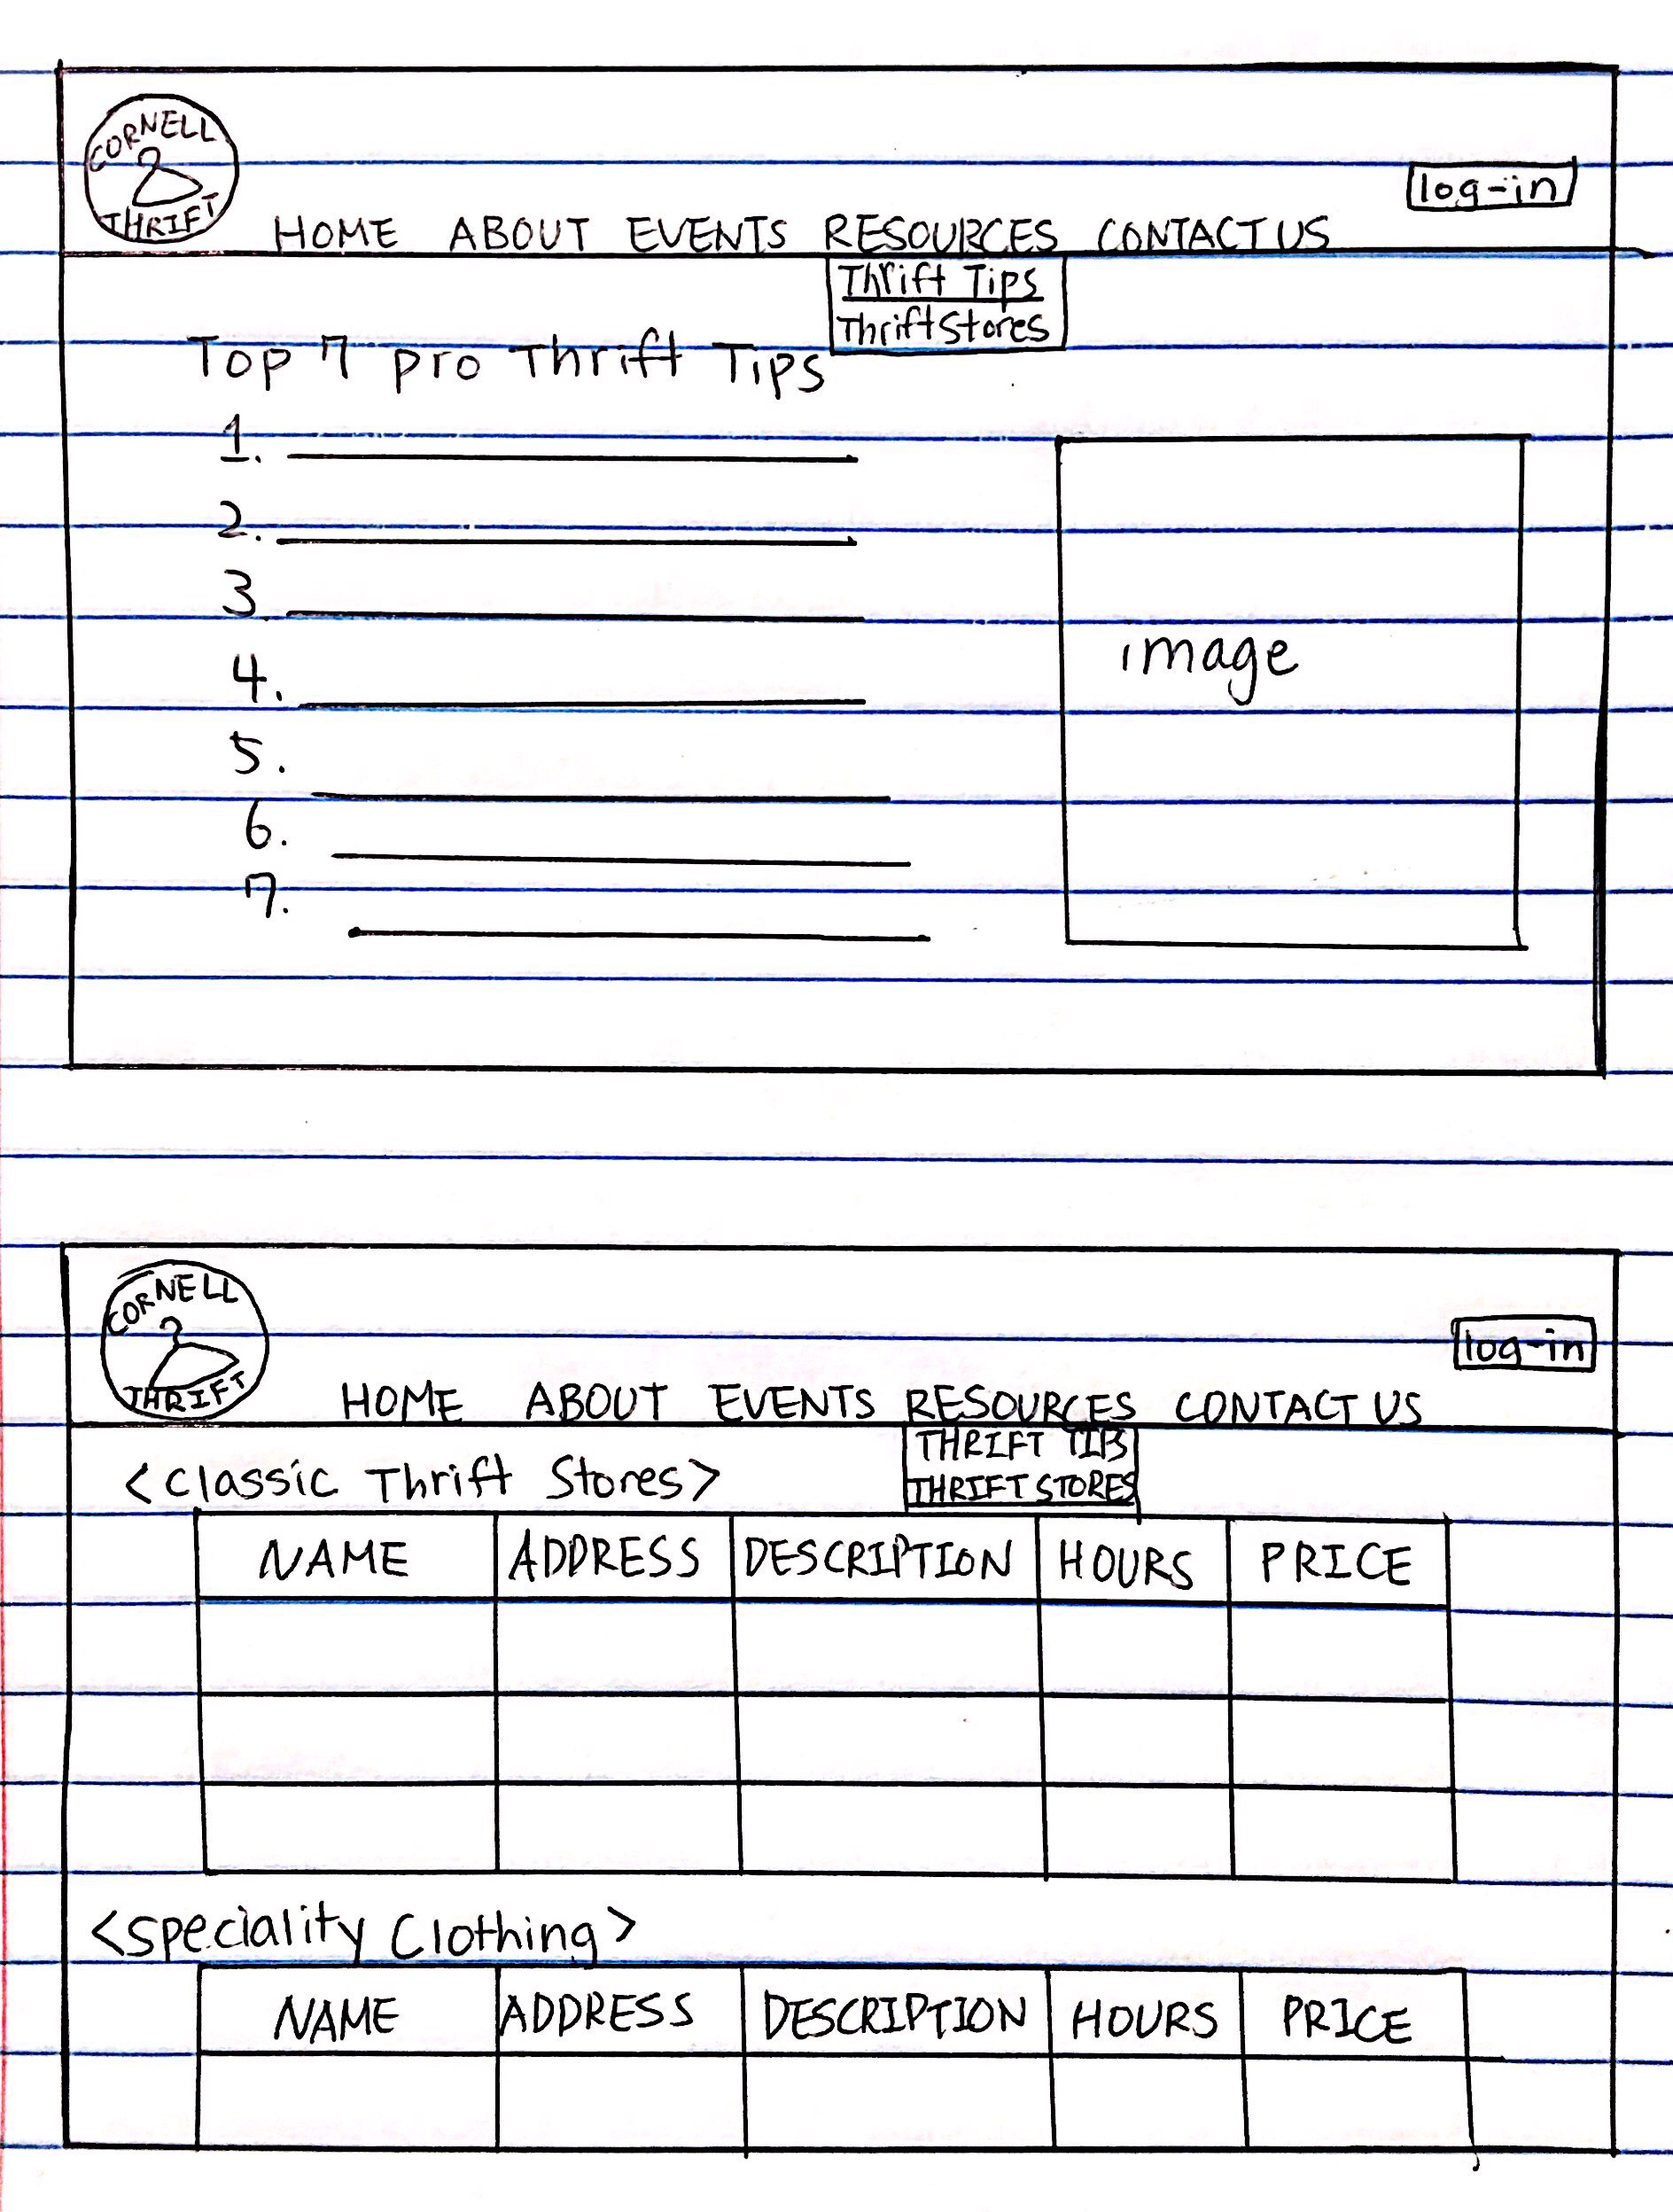 CORNELL
THRIFT
log-in
HOME ABOUT EVENTS RESOURCES CONTACT US
Thrift Tips
Thrift Stores
Top 7 pro Thrift Tips
1.
2.
3.
4.
5.
6.
7.
image
CORNELL
THRIFT
log-in
HOME ABOUT EVENTS RESOURCES CONTACT US
THRIFT TIPS
THRIFT STORES
<Classic Thrift Stores>
NAME ADDRESS DESCRIPTION HOURS PRICE
<Speciality Clothing>
NAME ADDRESS DESCRIPTION HOURS PRICE